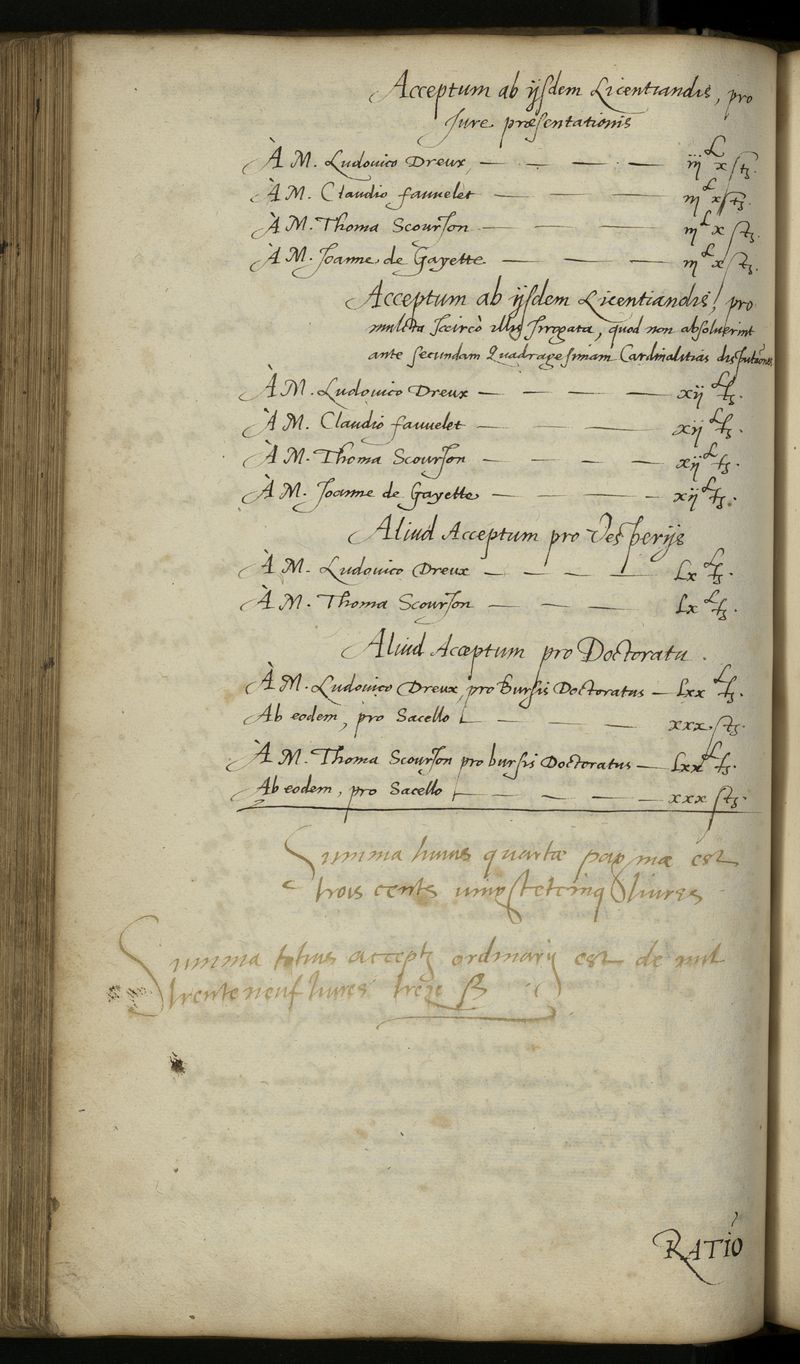 Acceptum ab ijsdem Licentiandis, pro
Jure præsentationis
À M. Ludouico Dreux, — — — iij L x st.
À M. Claudio fauuelet — — — iij L x st.
À M. Thoma Scourjon — — — iij L x st.
À M. Joanne de Gayette. — — — iij L x st.
Acceptum ab ijsdem Licentiandis, pro
mulcta Jccircò illis Jrrogata, quod non absoluerint
ante secundam Quadragesimam Cardinalitias disputationes
À M. Ludouico Dreux — — — — xij L t.
À M. Claudio fauuelet — — — xij L t.
À M. Thoma Scourjon — — — — xij L t.
À M. Joanne de Gayette — — — — xij L t.
Aliud Acceptum pro Vesperijs
À M. Ludouico Dreux — — — — Lx L t.
À M. Thoma Scourjon — — — Lx L t.
Aliud Acceptum pro Doctoratu.
À M. Ludouico Dreux, pro Bursis Doctoratus — Lxx L t.
Ab eodem, pro Sacello — — — xxx. st.
À M. Thoma Scourjon pro bursis Doctoratus — Lxx L t.
Ab eodem, pro Sacello — — — — xxx st.
Summa huius quartæ paginæ est
trois cents livres
Summa totius accepti ordinarij est de mil
trente neuf livres treze ß
RATIO